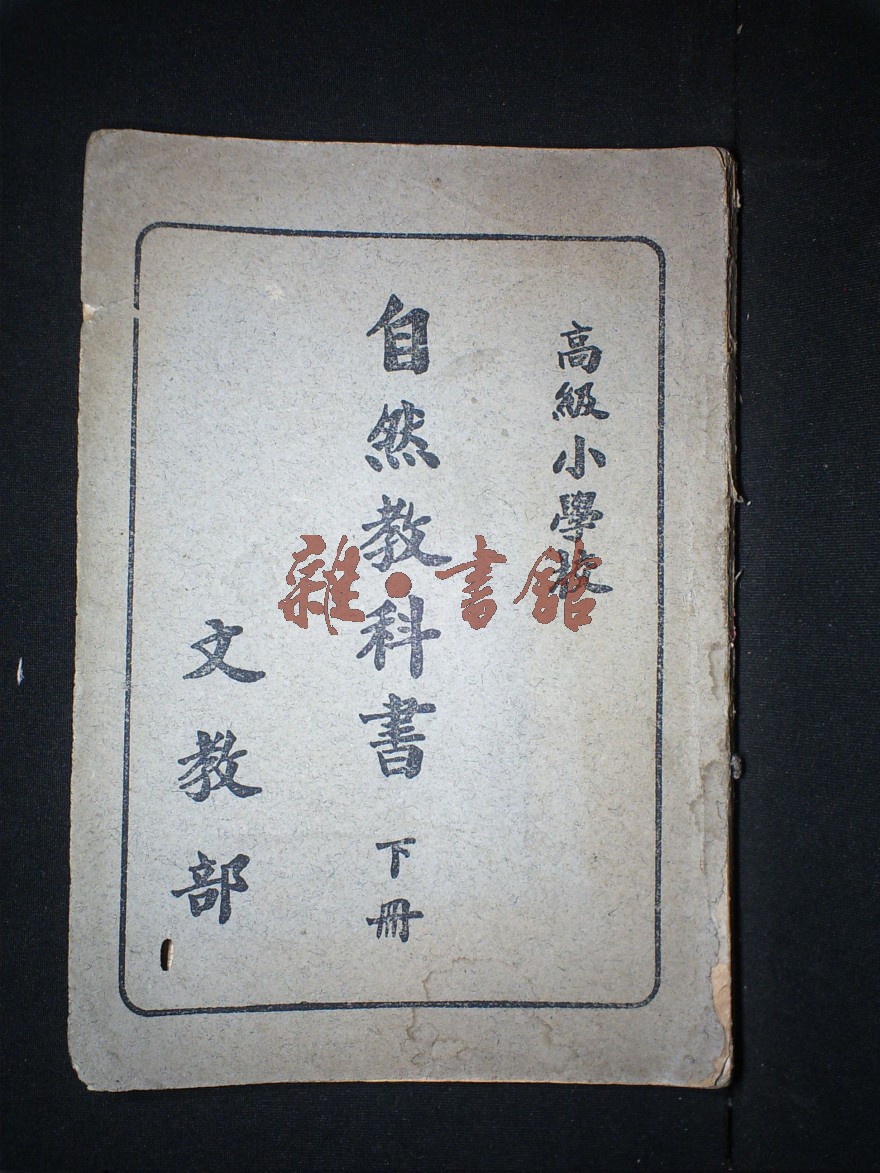 高級小學校
自然教科書 下冊
文教部
雜·書館